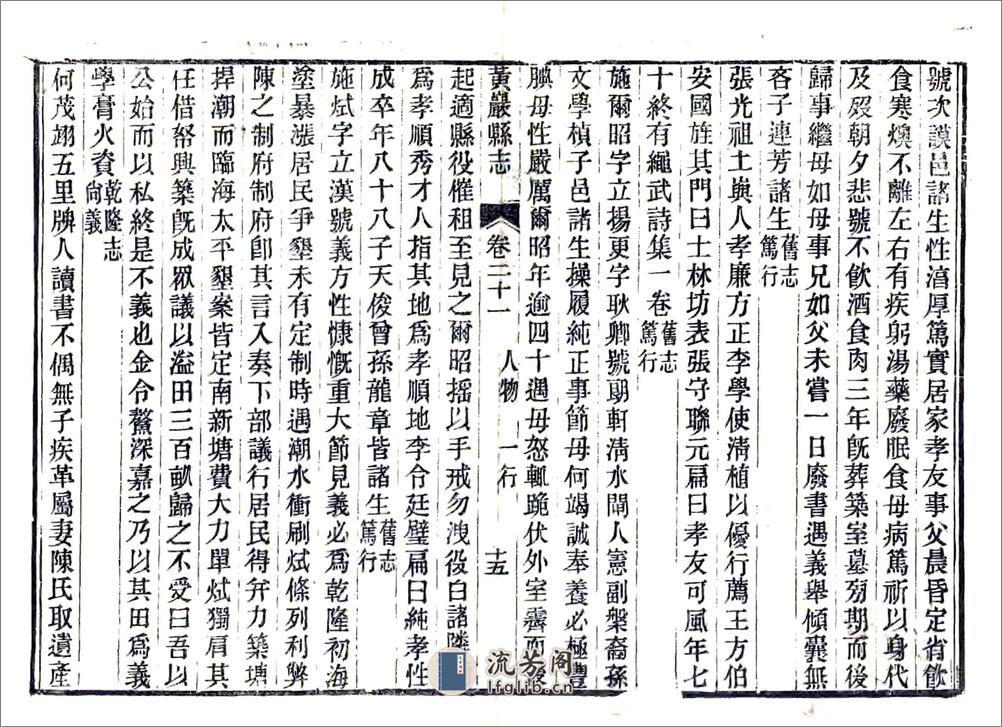 號次謨邑諸生性湻厚篤實居家孝友事父晨昏定省飲
食寒燠不離左右有疾躬湯藥廢眠食母病篤祈以身代
及歿朝夕悲號不飲酒食肉三年旣葬築室墓旁期而後
歸事繼母如母事兄如父未嘗一日廢書遇義舉傾囊無
吝子連芳諸生舊志篤行
張光祖土嶴人孝廉方正李學使淸植以優行薦王方伯
安國旌其門曰士林坊表張守聯元扁曰孝友可風年七
十終有繩武詩集一卷舊志篤行
施爾昭字立揚更字耿卿號朗軒淸水閘人憲副槃裔孫
文學楨子邑諸生操履純正事節母何竭誠奉養必極豐
腆母性嚴厲爾昭年逾四十遇母怒輒跪伏外室霽而後
黃巖縣志 卷二十一 人物 一行 十五
起適縣役催租至見之爾昭搖以手戒勿洩役白諸隣
爲孝順秀才人指其地爲孝順地李令廷璧扁曰純孝性
成卒年八十八子天俊曾孫龍章皆諸生舊志篤行
施烒字立漢號義方性慷慨重大節見義必爲乾隆初海
塗暴漲居民爭墾未有定制時遇潮水衝刷烒條列利弊
陳之制府制府卽其言入奏下部議行居民得并力築塘
捍潮而臨海太平墾案皆定南新塘費大力單烒獨肩其
任借帑興築旣成眾議以溢田三百畝歸之不受曰吾以
公始而以私終是不義也金令鰲深嘉之乃以其田爲義
學膏火資乾隆志尙義
何茂翊五里牌人讀書不偶無子疾革屬妻陳氏取遺產
流芳阁
lfglib.cn